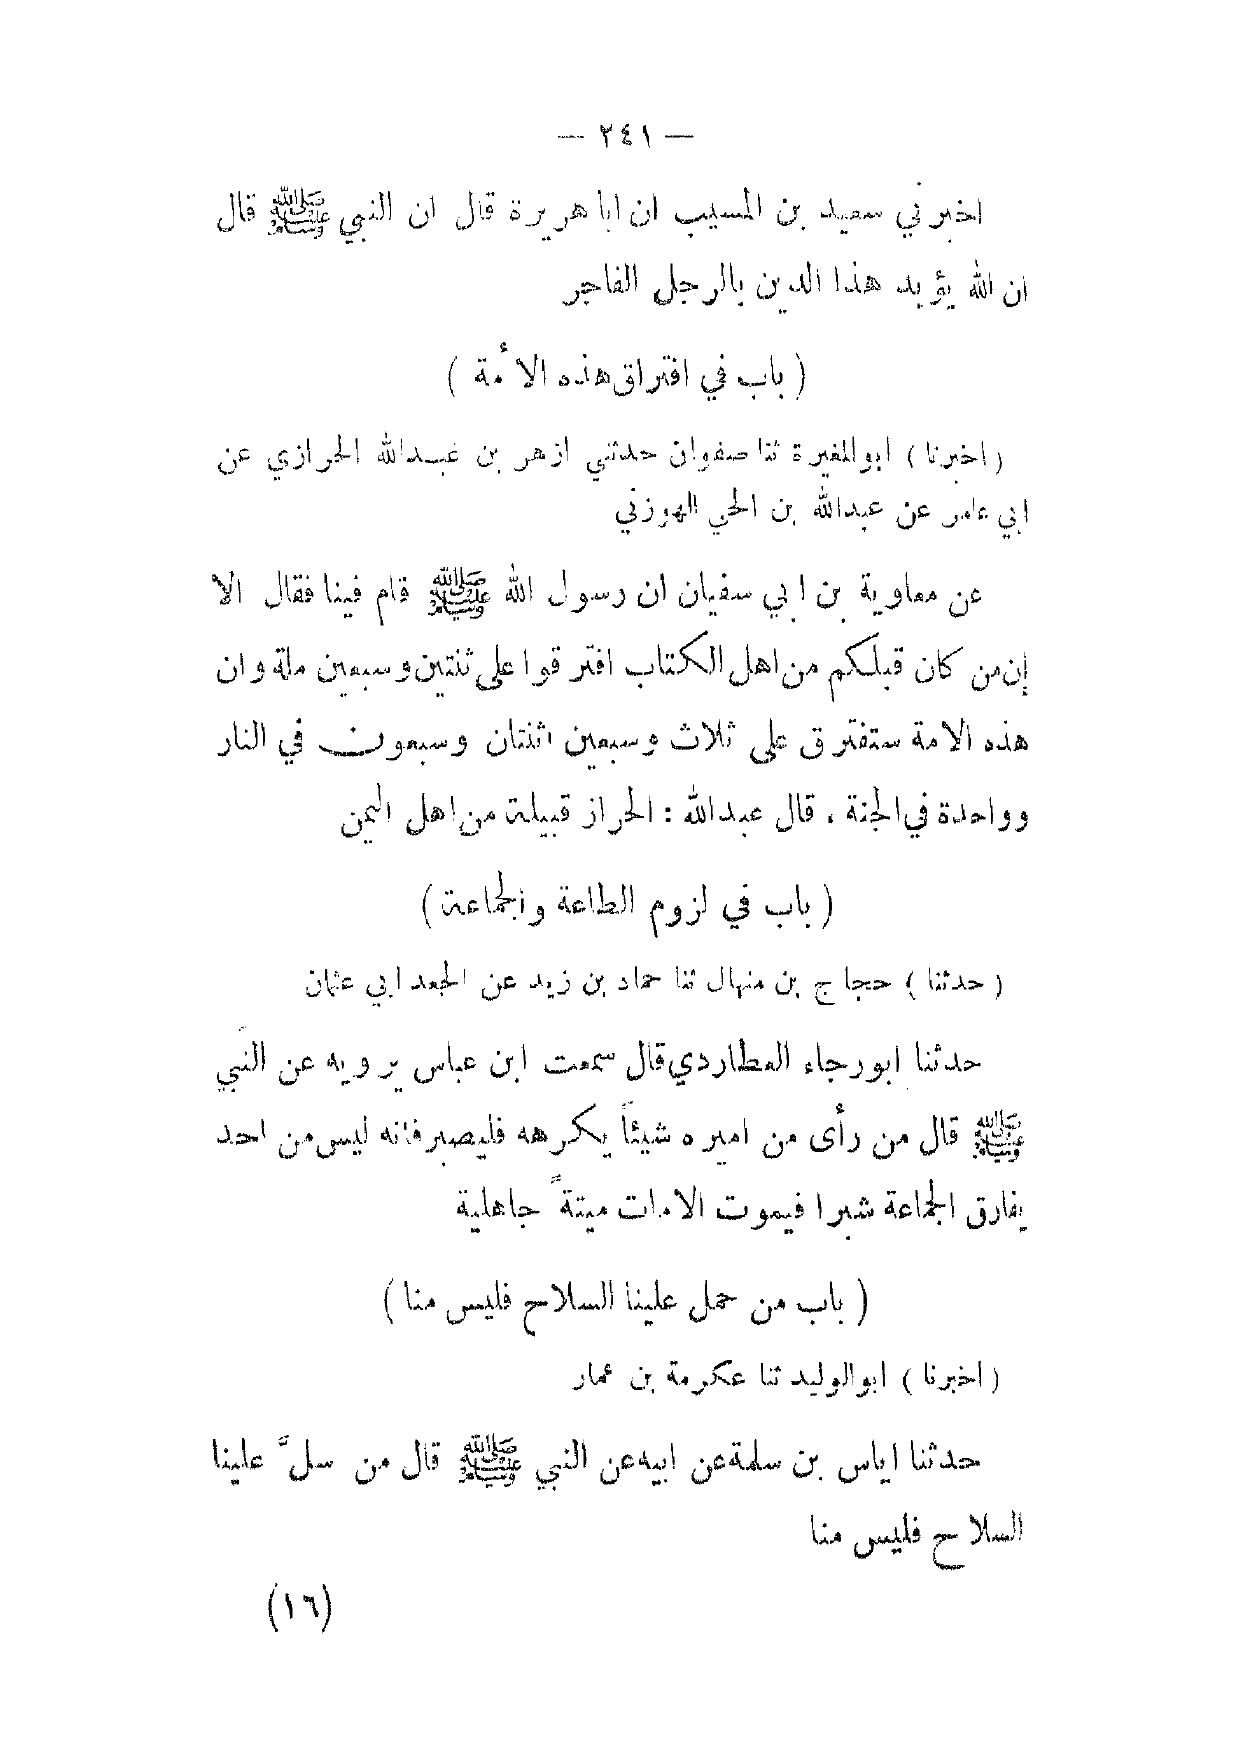 — ٢٤١ —
اخبرني سعيد بن المسيب ان ابا هريرة قال ان النبي ﷺ قال
ان الله يؤيد هذا الدين بالرجل الفاجر
( باب في افتراق هذه الأمة )
( اخبرنا ) ابوالمغيرة ثنا صفوان حدثني ازهر بن عبدالله الحرازي عن
ابي عامر عن عبدالله بن الحي الهوزني
عن معاوية بن ابي سفيان ان رسول الله ﷺ قام فينا فقال الا
إن من كان قبلكم من اهل الكتاب افترقوا على ثنتين وسبعين ملة وان
هذه الامة ستفترق على ثلاث وسبعين اثنتان وسبعون في النار
وواحدة في الجنة ، قال عبدالله : الحراز قبيلة من اهل اليمن
( باب في لزوم الطاعة والجماعة )
( حدثنا ) حجاج بن منهال ثنا حماد بن زيد عن الجعد ابي عثمان
حدثنا ابورجاء العطاردي قال سمعت ابن عباس يرويه عن النبي
ﷺ قال من رأى من اميره شيئاً يكرهه فليصبر فانه ليس من احد
يفارق الجماعة شبرا فيموت الامات ميتةً جاهلية
( باب من حمل علينا السلاح فليس منا )
( اخبرنا ) ابوالوليد ثنا عكرمة بن عمار
حدثنا اياس بن سلمة عن ابيه عن النبي ﷺ قال من سلَّ علينا
السلاح فليس منا
(١٦)